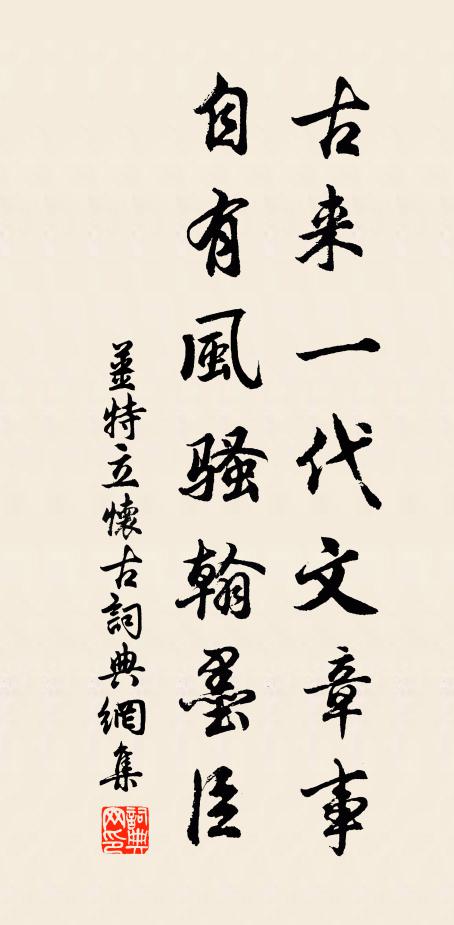 古来一代文章事
自有風骚翰墨臣
姜特立懷古詞典網集
詞典网印